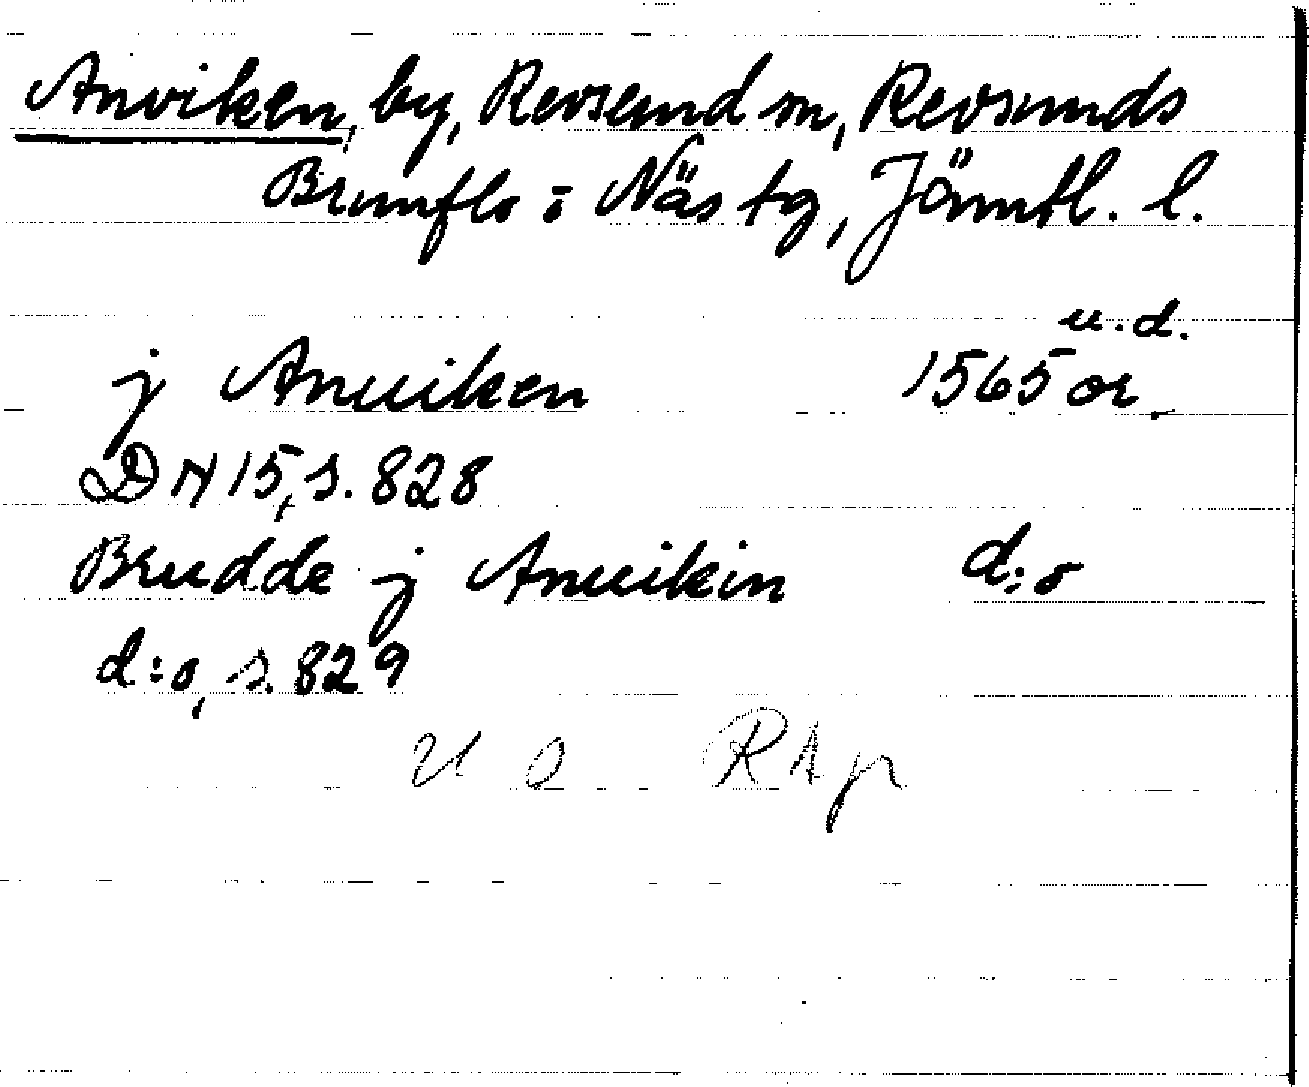 Anviken, by, Revsund sn, Revsunds
Brunflo o Näs tg, Jämtl. l.
u.d.
j Anuiken 1565 or.
DN 15, s. 828
Brudde j Anuikin d:o
d:o, s. 829